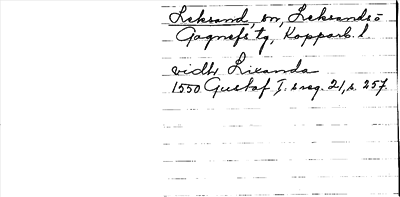 Leksand, sn, Leksands o
Gagnefs tg, Kopparb. l
vidhr Lixanda
1550 Gustaf I:s reg. 21, s. 257.